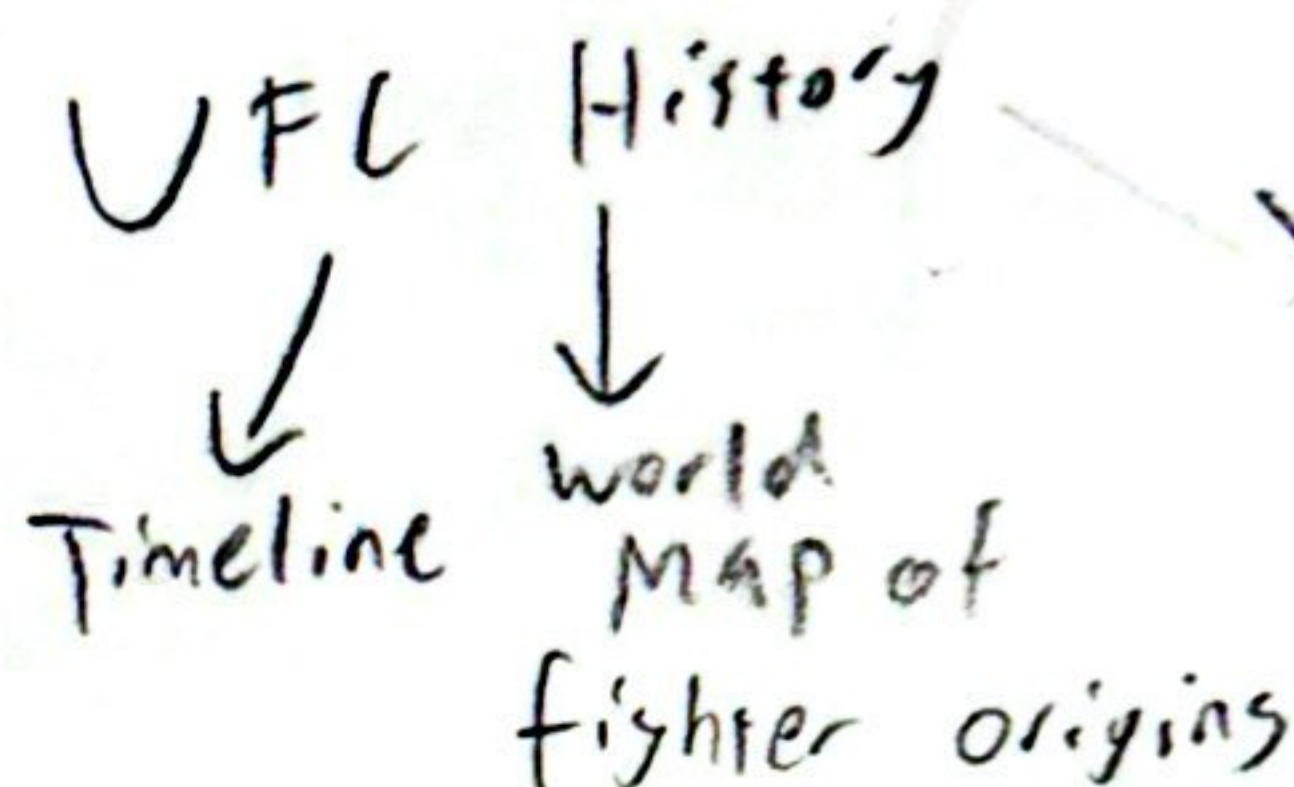 UFC History
Timeline
world
Map of
fighter origins